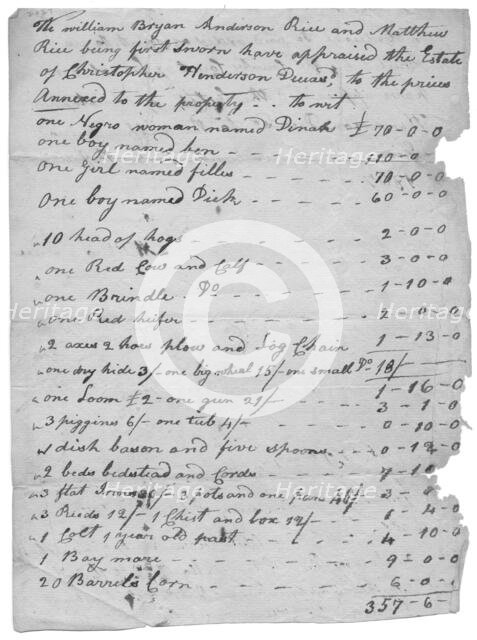 We william Bryan Anderson Rice and Matthew
Rice being first sworn have appraised the Estate
of Christopher Henderson Deceasd, to the prices
Annexed to the property .. to wit
one Negro woman named Dinah £ 70-0-0
one boy named ken - - - 110-0-0
one Girl named filles - - - 70-0-0
one boy named Dick - - - 60-0-0
"10 head of hogs - - - 2-0-0
"one Red Cow and Calf - - - 3-0-0
"one Brindle Do - - - 1-10-0
"one Red heifer - - -
"2 axes 2 hoes plow and Log Chain 1-13-0
"one dry hide 3/- one big wheal 15/- one small Do 18/-
"one Loom £2- one gun 21/- 1-16-0
"3 piggins 6/- one tub 4/- 3-1-0
"1 dish bason and five spoons 0-10-0
"2 beds bedstead and Cords 0-12-0
"3 flat Irons pots and one 7-10
"3 Reeds 12/- 1 Chist and box 12/- 3
"1 Colt 1 year old past 1-4-0
1 Bay mare 4-10-0
20 Barrels Corn 9-0-0
6-0-
357-6-
Heritage
Heritage
Heritage
Heritage
Heritage
Heritage
C